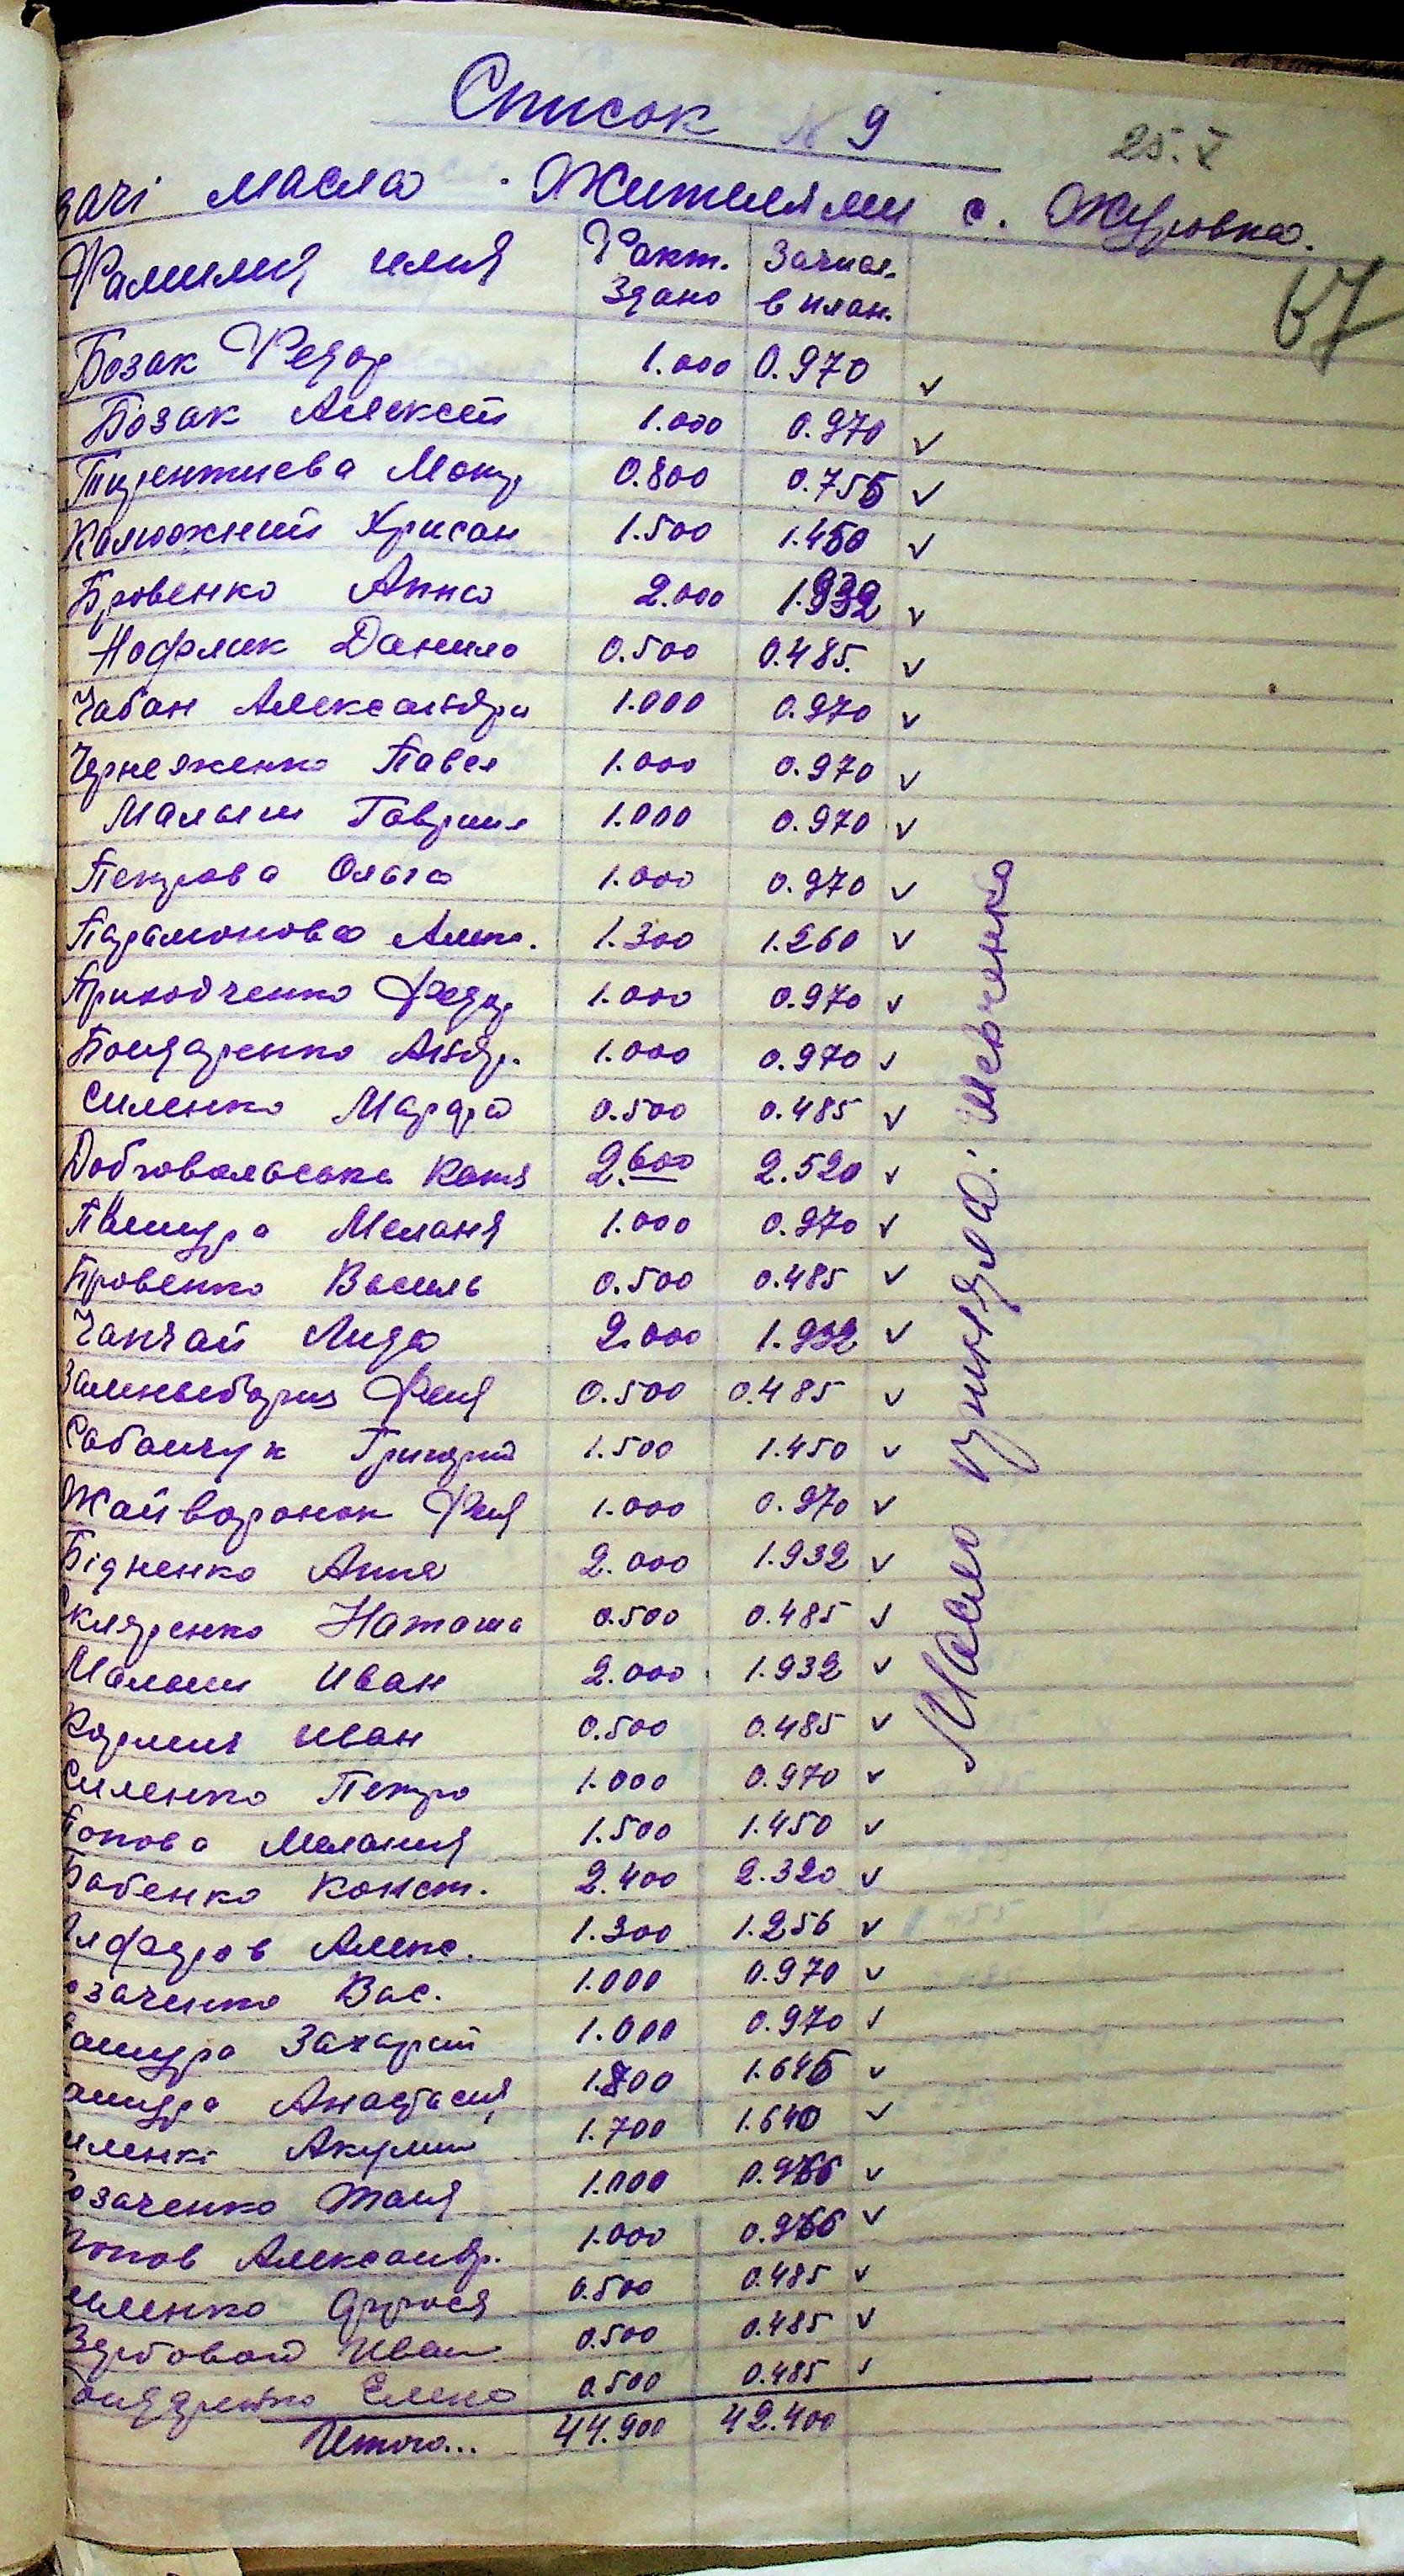 Список № 9
25.X
здачі масла Жителями с. Журовка.
67
Фамилия имия Факт. Здано Зачисл. в план.
Бозак Федор 1.000 0.970 ✓
Бозак Алексей 1.000 0.970 ✓
Терентиева Мокр 0.800 0.755 ✓
Калюжний Хрисан 1.500 1.450 ✓
Бровенко Анна 2.000 1.932 ✓
Данило 0.500 0.485. ✓
Чабан Александри 1.000 0.970 ✓
Павел 1.000 0.970 ✓
Малыш Гаврил 1.000 0.970 ✓
Петрова Ольга 1.000 0.970 ✓
Парамонова Алекс. 1.300 1.260 ✓
Приходченко Федор 1.000 0.970 ✓
Бондаренко Андр. 1.000 0.970 ✓
Силенко Марфа 0.500 0.485 ✓
Добровольська Катя 2.600 2.520 ✓
Меланя 1.000 0.970 ✓
Бровенко Василь 0.500 0.485 ✓
Чакчай Лида 2.000 1.932 ✓
Феня 0.500 0.485 ✓
Сабанчук Григорий 1.500 1.450 ✓
Жайворонок Феня 1.000 0.970 ✓
Бідненко Анна 2.000 1.932 ✓
Скляренко Наташа 0.500 0.485 ✓
Малыш Иван 2.000 1.932 ✓
Иван 0.500 0.485 ✓
Силенко Петро 1.000 0.970 ✓
Попова Мелания 1.500 1.450 ✓
Бабенко Конст. 2.400 2.320 ✓
Алекс. 1.300 1.256 ✓
озаченко Вас. 1.000 0.970 ✓
Захарий 1.000 0.970 ✓
Анастасия 1.700 1.645 ✓
иленко Акулина 1.700 1.640 ✓
озаченко Таня 1.000 0.966 ✓
Попов Александр. 1.000 0.966 ✓
иленко Фрося 0.500 0.485 ✓
Иван 0.500 0.485 ✓
Бондаренко Елена 0.500 0.485 ✓
Итого... 44.900 42.400
Масло приняла: Шевченко